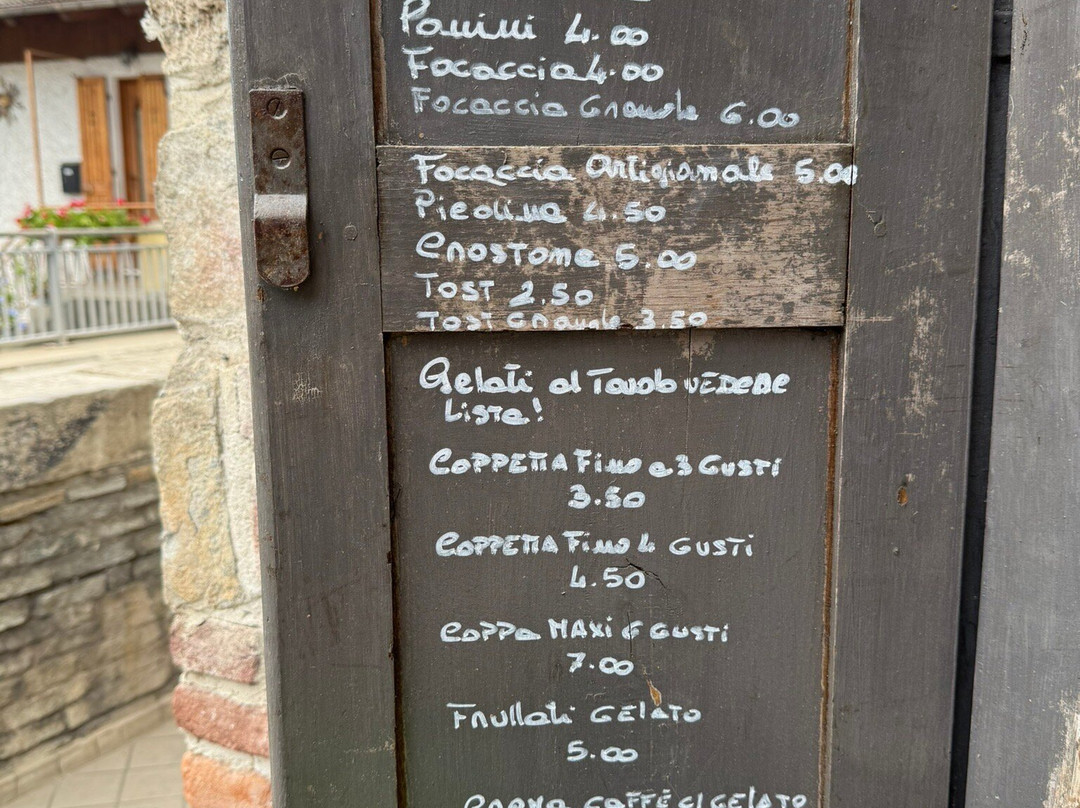 Panini 4.00
Focaccia 4.00
Focaccia Grande 6.00
Focaccia Artigianale 5.00
Piedina 4.50
Crostone 5.00
Tost 2.50
Tost Grande 3.50
Gelati al Tavolo VEDERE
Lista!
COPPETTA Fino a 3 GUSTi
3.50
COPPETTA Fino 4 GUSTi
4.50
COPPA MAXi 6 GUSTi
7.00
Frullati GELATO
5.00
CAFFÈ GELATO